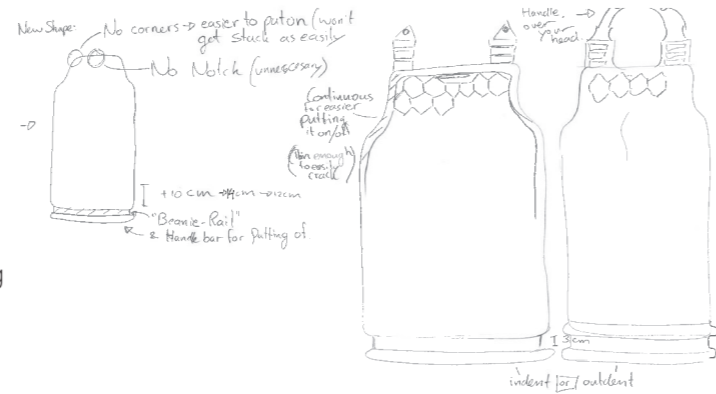 New Shape:
No corners → easier to put on (won't
get stuck as easily
No Notch (unnecessary)
+10cm → 14cm → 12cm
"Beanie-Rail"
& Handle bar for Putting of
Continuous
for easier
putting
it on/off
(thin enough
to easily
crack)
Handle,
over
your
head.
3cm
indent or outdent